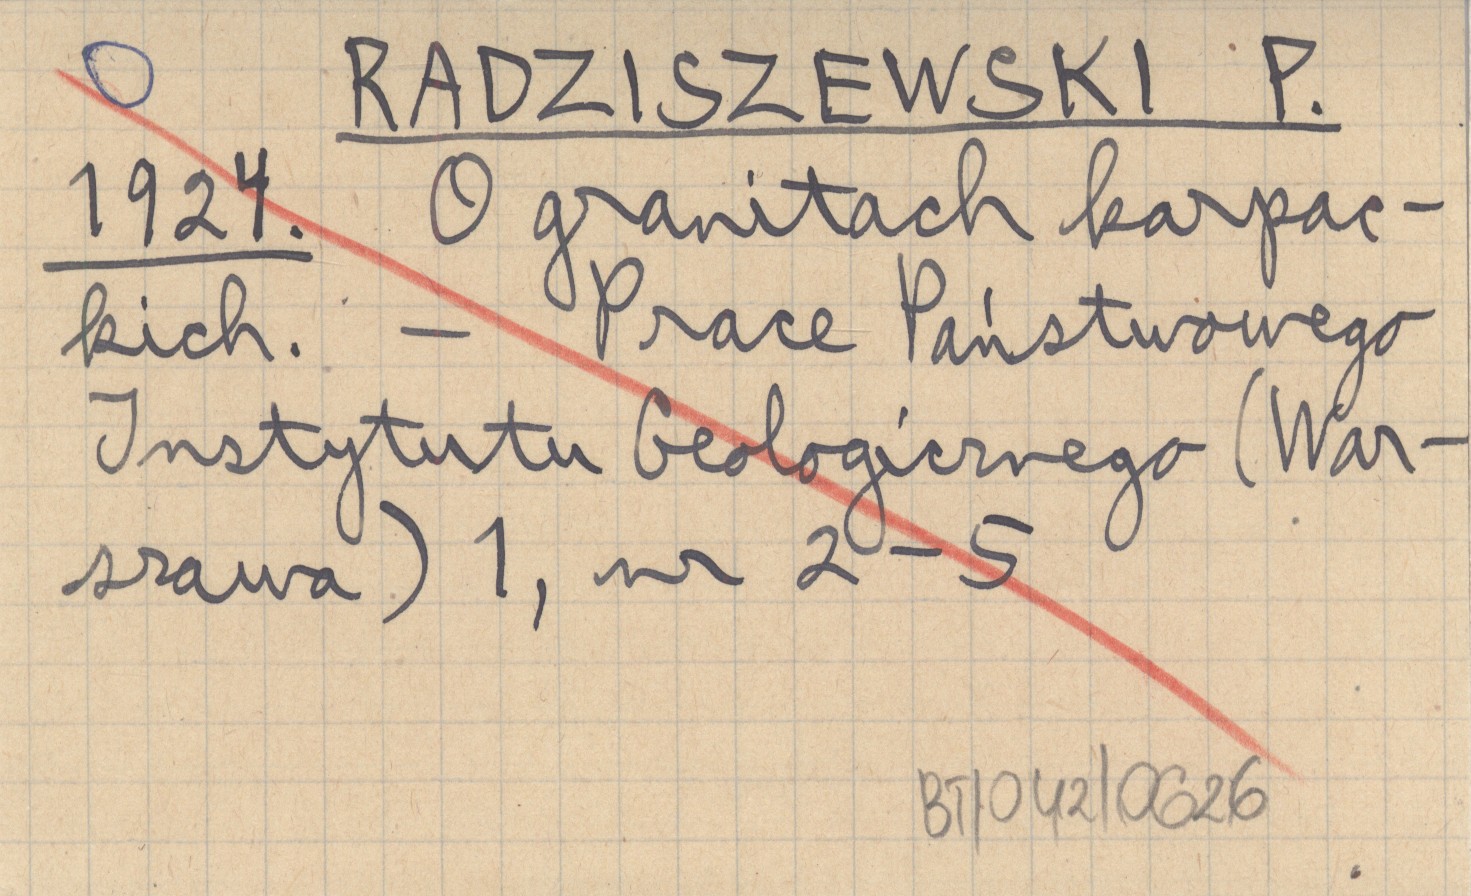 O RADZISZEWSKI P.
1924. O granitach karpac-
kich. - Prace Państwowego
Instytutu Geologicznego (War-
szawa) 1, nr 2-5
BT/042/0626